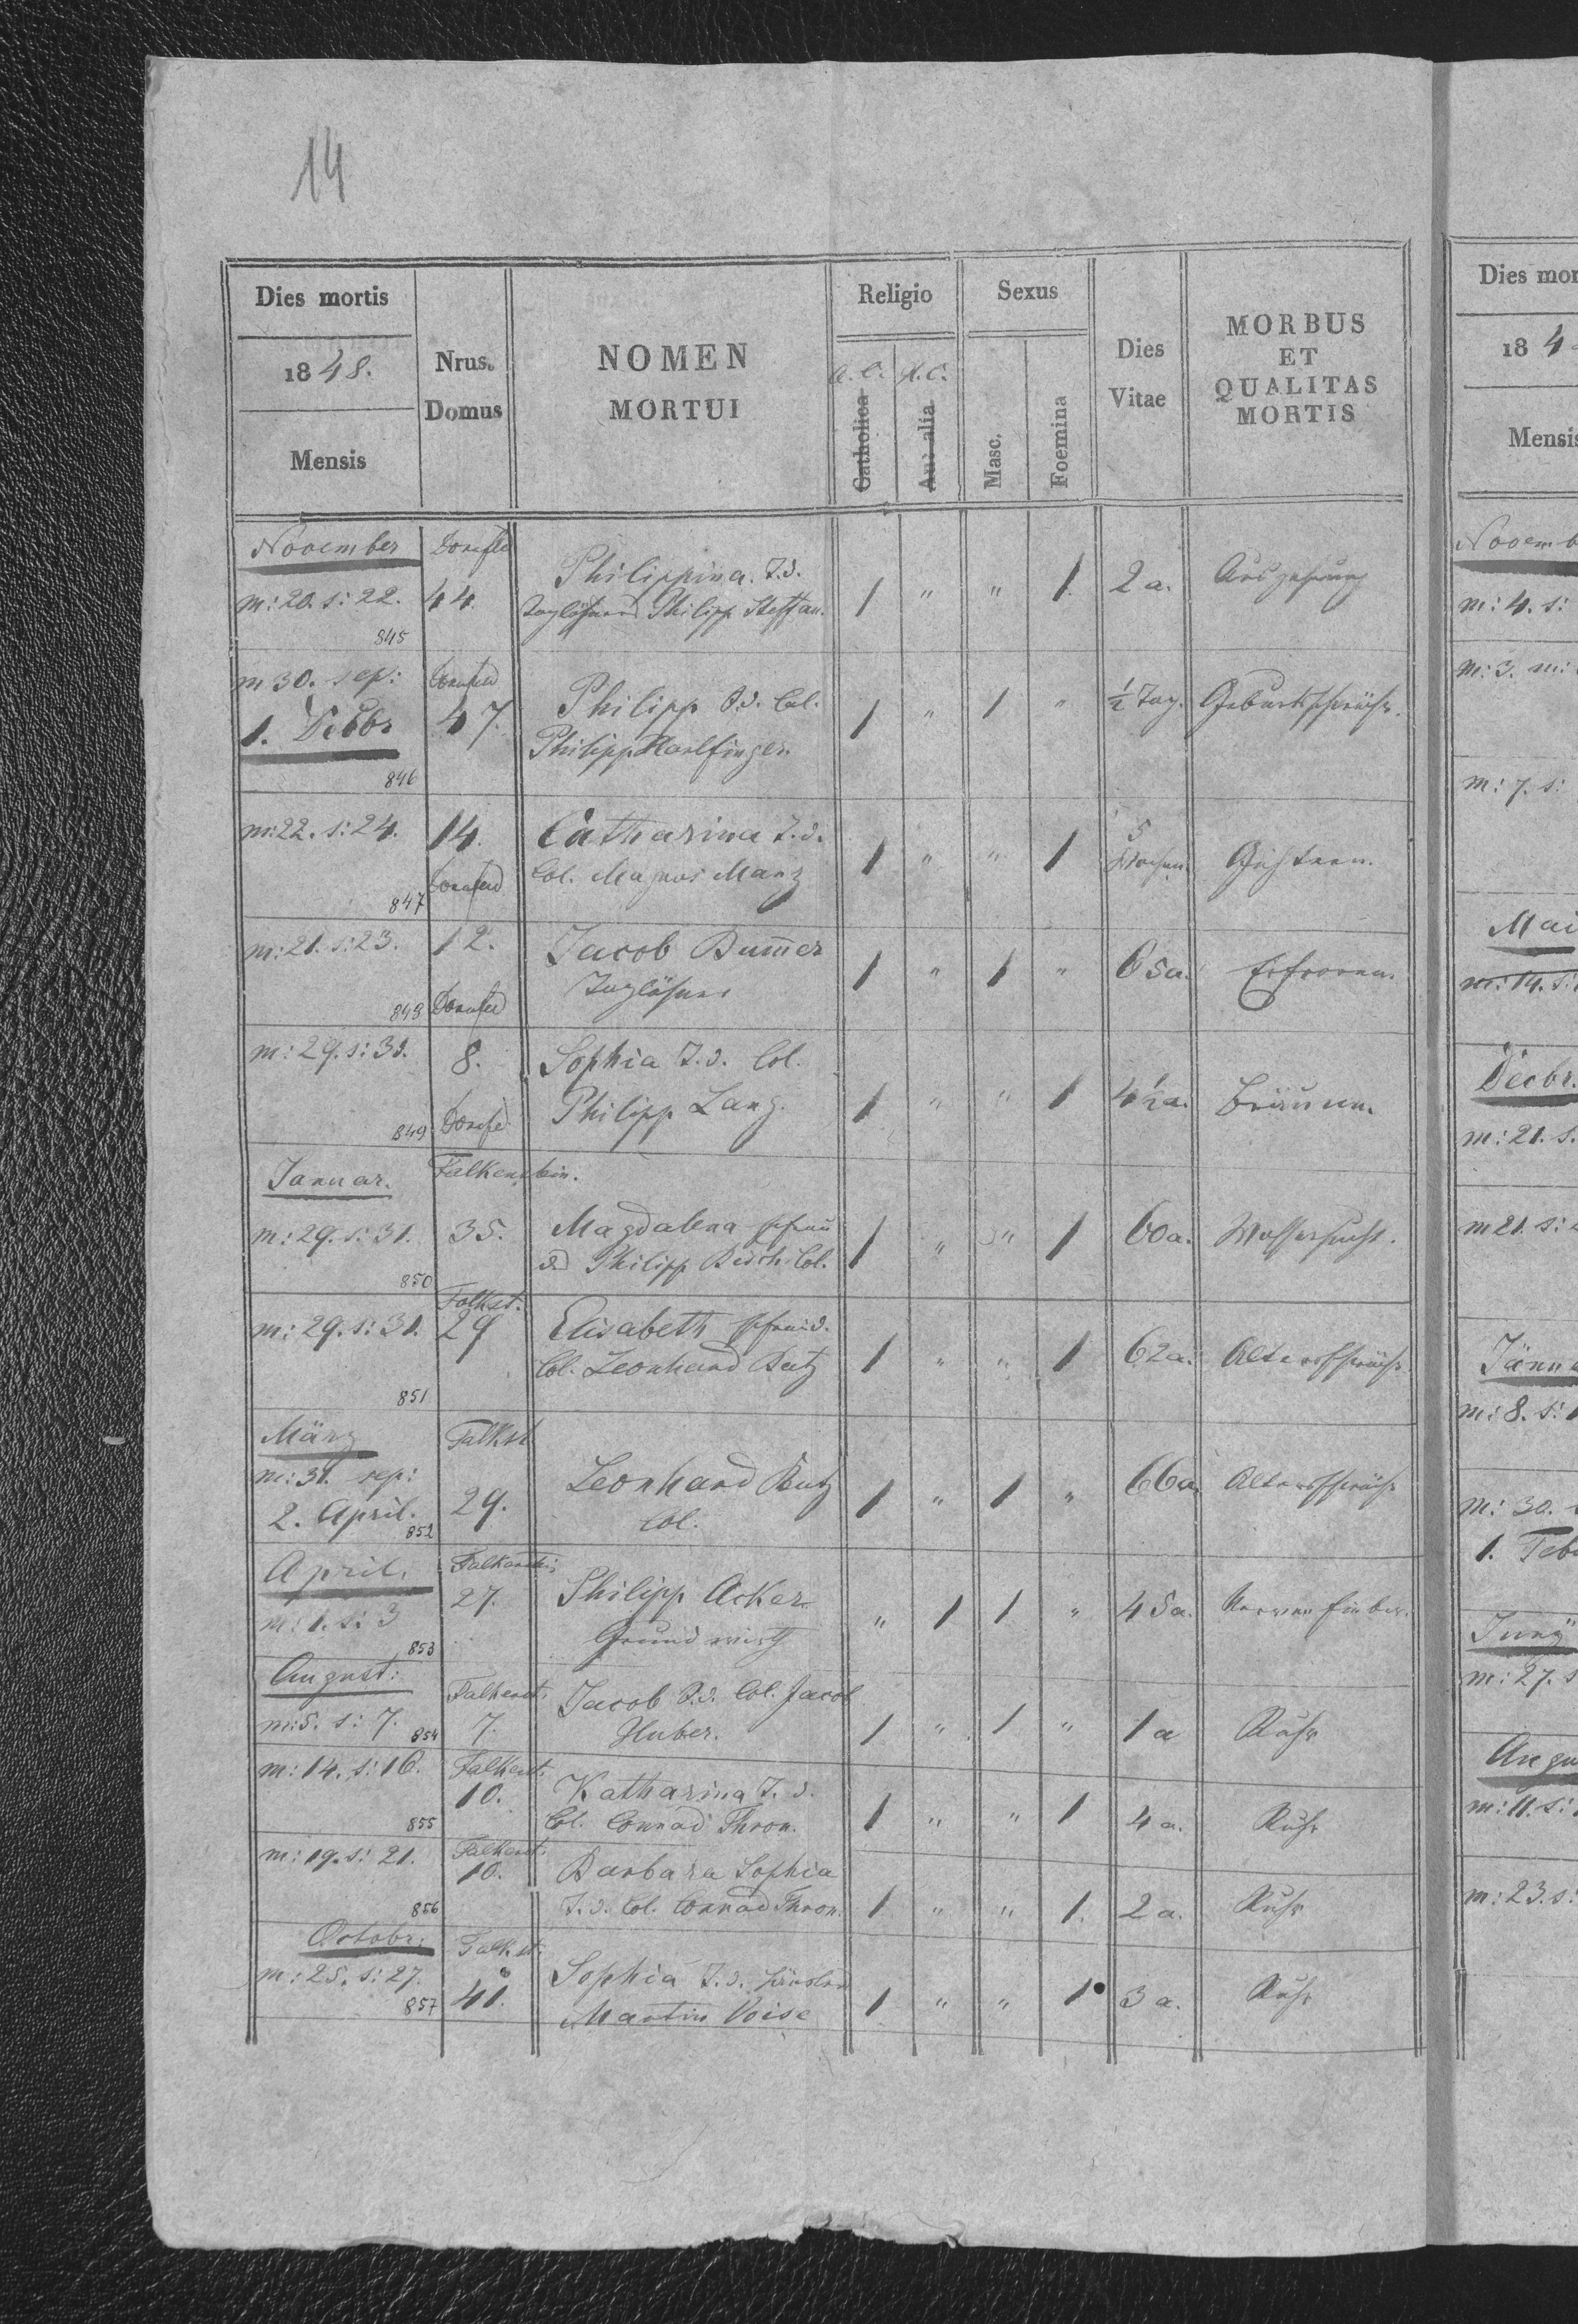 14
Dies mortis
1848.
Mensis
Nrus.
Domus
NOMEN
MORTUI
Religio
A.C. H.C.
Catholica
Aut alia
Sexus
Masc.
Foemina
Dies
Vitae
MORBUS
ET
QUALITAS
MORTIS
November Dornfld
Philippina. T.d.
m: 20. s: 22. 44. Taglöhners Philipp Steffan. 1 " " 1. 2 a. Auszehrung
845
m 30. sep: Dornfeld
1. Decbr 47. Philipp S.d. Col. 1 " 1 " ½ Tag. Geburtsschwäche.
Philipp Harlfinger.
846
m: 22. s: 24. 14. Catharina T.d. 5
Dornfeld Col. Magnus Manz 1 " " 1 Wochen Gichtern.
847
m: 21. s: 23. 12. Jacob Bum̄er
Dornfld Taglöhner 1 " 1 " 65 a. Erfroren.
848
m: 29. s: 31. 8. Sophia T.d. Col.
Dornfd Philipp Lang. 1 " " 1 4½ a. Bräune.
849
Januar. Falkenstein.
m: 29. s: 31. 35. Magdalena Ehefrau
d. Philipp Bisch Col. 1 " " 1 60 a. Wassersucht.
850
Falkst.
m: 29. s: 31. 29 Elisabeth Ehefrau d.
Col. Leonhard Butz 1 " " 1 62 a. Altersschwäche.
851
März Falkst
m: 31. sep: Leonhard Butz
2. April. 29. Col. 1 " 1 " 66 a. Altersschwäche
852
April. Falkenstei:
m: 1. s: 3 27. Philipp Acker
Grundwirth " 1 1. " 45 a. Nervenfieber.
853
August: Falkenst:
m: 5. s: 7. 7. Jacob S.d. Col. Jacob
Huber. 1 " 1 " 1 a Ruhr
854
m: 14. s: 16. Falkenst:
10. Katharina T.d.
Col. Conrad Thron. 1 " " 1 4 a. Ruhr
855
m: 19. s: 21. Falkenst:
10. Barbara Sophia
T.d. Col. Conrad Thron. 1 " " 1. 2 a. Ruhr
856
Octobr: Falkst:
m: 25. s: 27. 41. Sophia T.d.
Martin Voise 1 " " 1 3 a. Ruhr
857
Dies mor
184
Mensis
Novemb
m: 4. s:
m: 3. m:
m: 7. s:
Mai
m: 14. s:
Decbr.
m: 21. s.
m 21. s:
Jänn
m: 8. s: 1
m: 30.
1. Feb
Juny
m: 27. s
Augu
m: 11. s:
m: 23. s: